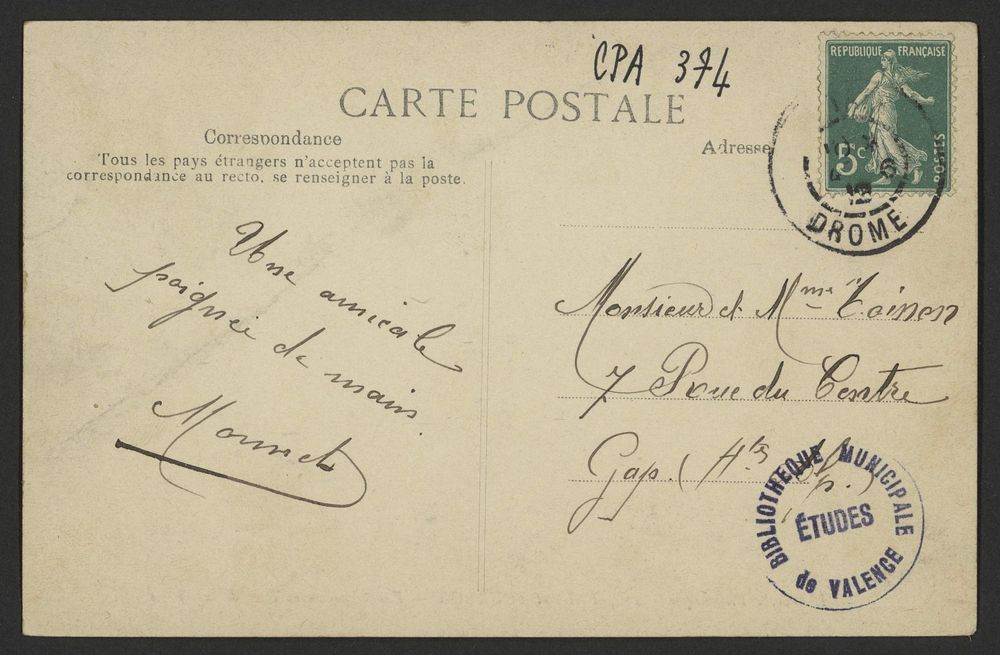 CPA 374
CARTE POSTALE
Correspondance
Tous les pays étrangers n'acceptent pas la
correspondance au recto, se renseigner à la poste.
Adresse
REPUBLIQUE FRANÇAISE
5c
POSTES
DROME
Une amicale
poignée de main.
Monsieur et Mme Toinon
7 Rue du Centre
Gap. (Htes Alp.)
BIBLIOTHEQUE MUNICIPALE
ÉTUDES
de VALENCE